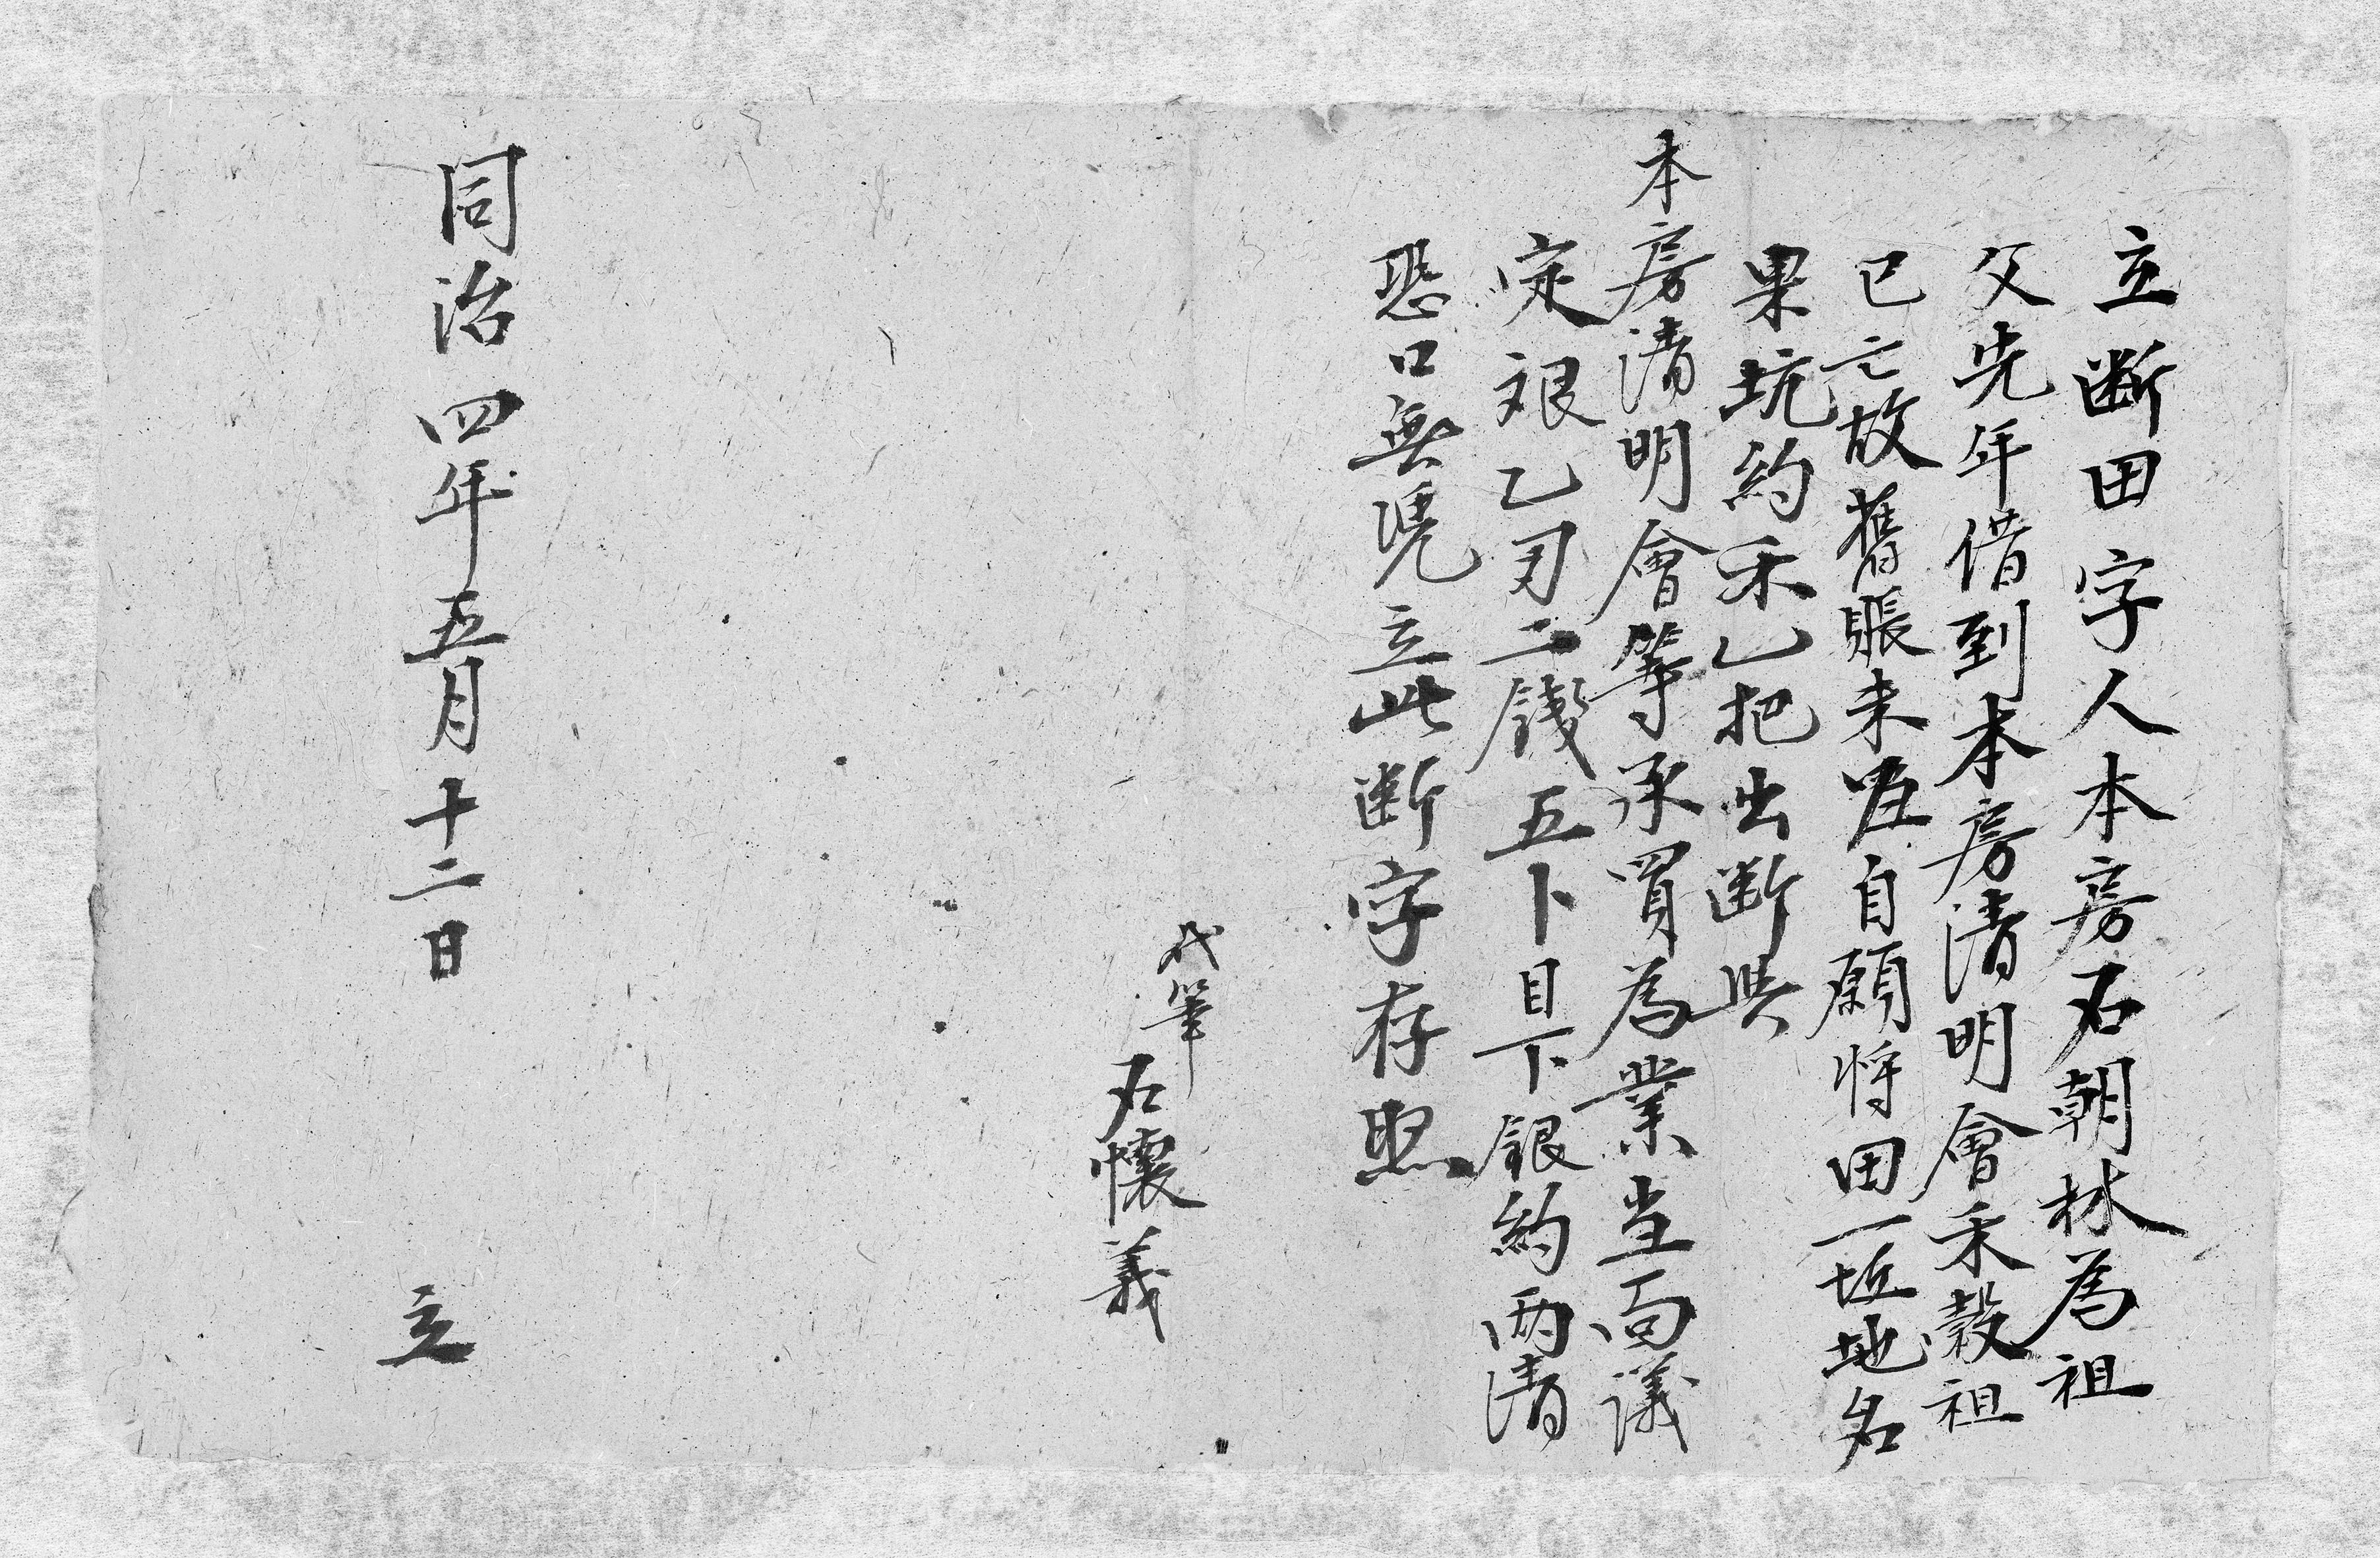 立断田字人本房石朝林為祖
父先年借到本房清明會禾穀祖
已亡故舊賬未还自願将田一坵地名
果坑約禾乙把出断与
本房清明會等承買為業当面議
定艮乙刃二錢五卜目下銀約两清
恐口無凴立此断字存照
代筆 石懷義
同治四年五月十二日 立